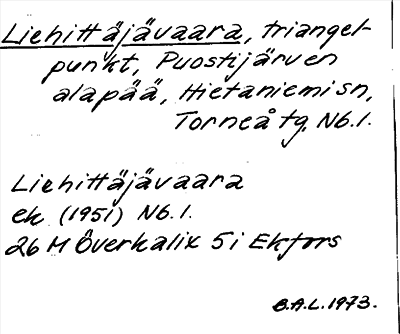 Liehittäjävaara, triangel-
punkt, Puostijärven
alapää, Hietaniemi sn,
Torneå tg, Nb. l.
Liehittäjävaara
ek (1951) Nb. l.
26 M Överkalix 5 i Ekfors
B.A.L. 1973.